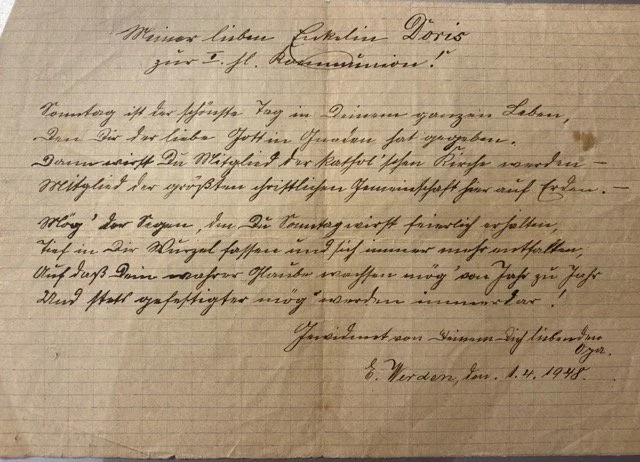 Meiner lieben Enkelin Doris
zur I. hl. Kommunion!
Sonntag ist der schönste Tag in Deinem ganzen Leben,
Den Dir der liebe Gott in Gnaden hat gegeben.
Dann wirst Du Mitglied der kathol'schen Kirche werden –
Mitglied der größten christlichen Gemeinschaft hier auf Erden. –
Mög' der Segen, den Du Sonntag wirst feierlich erhalten,
Tief in Dir Wurzel fassen und sich immer mehr entfalten,
Auf daß Dein wahrer Glaube wachsen mög' von Jahr zu Jahr
Und stets gefestigter mög' werden immerdar!
Gewidmet von Deinem Dich liebenden
Opa.
E. Werden, den 1.4.1948.